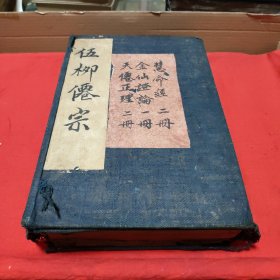 伍柳僊宗
慧命經 二冊
金仙證論 一冊
天僊正理 二冊